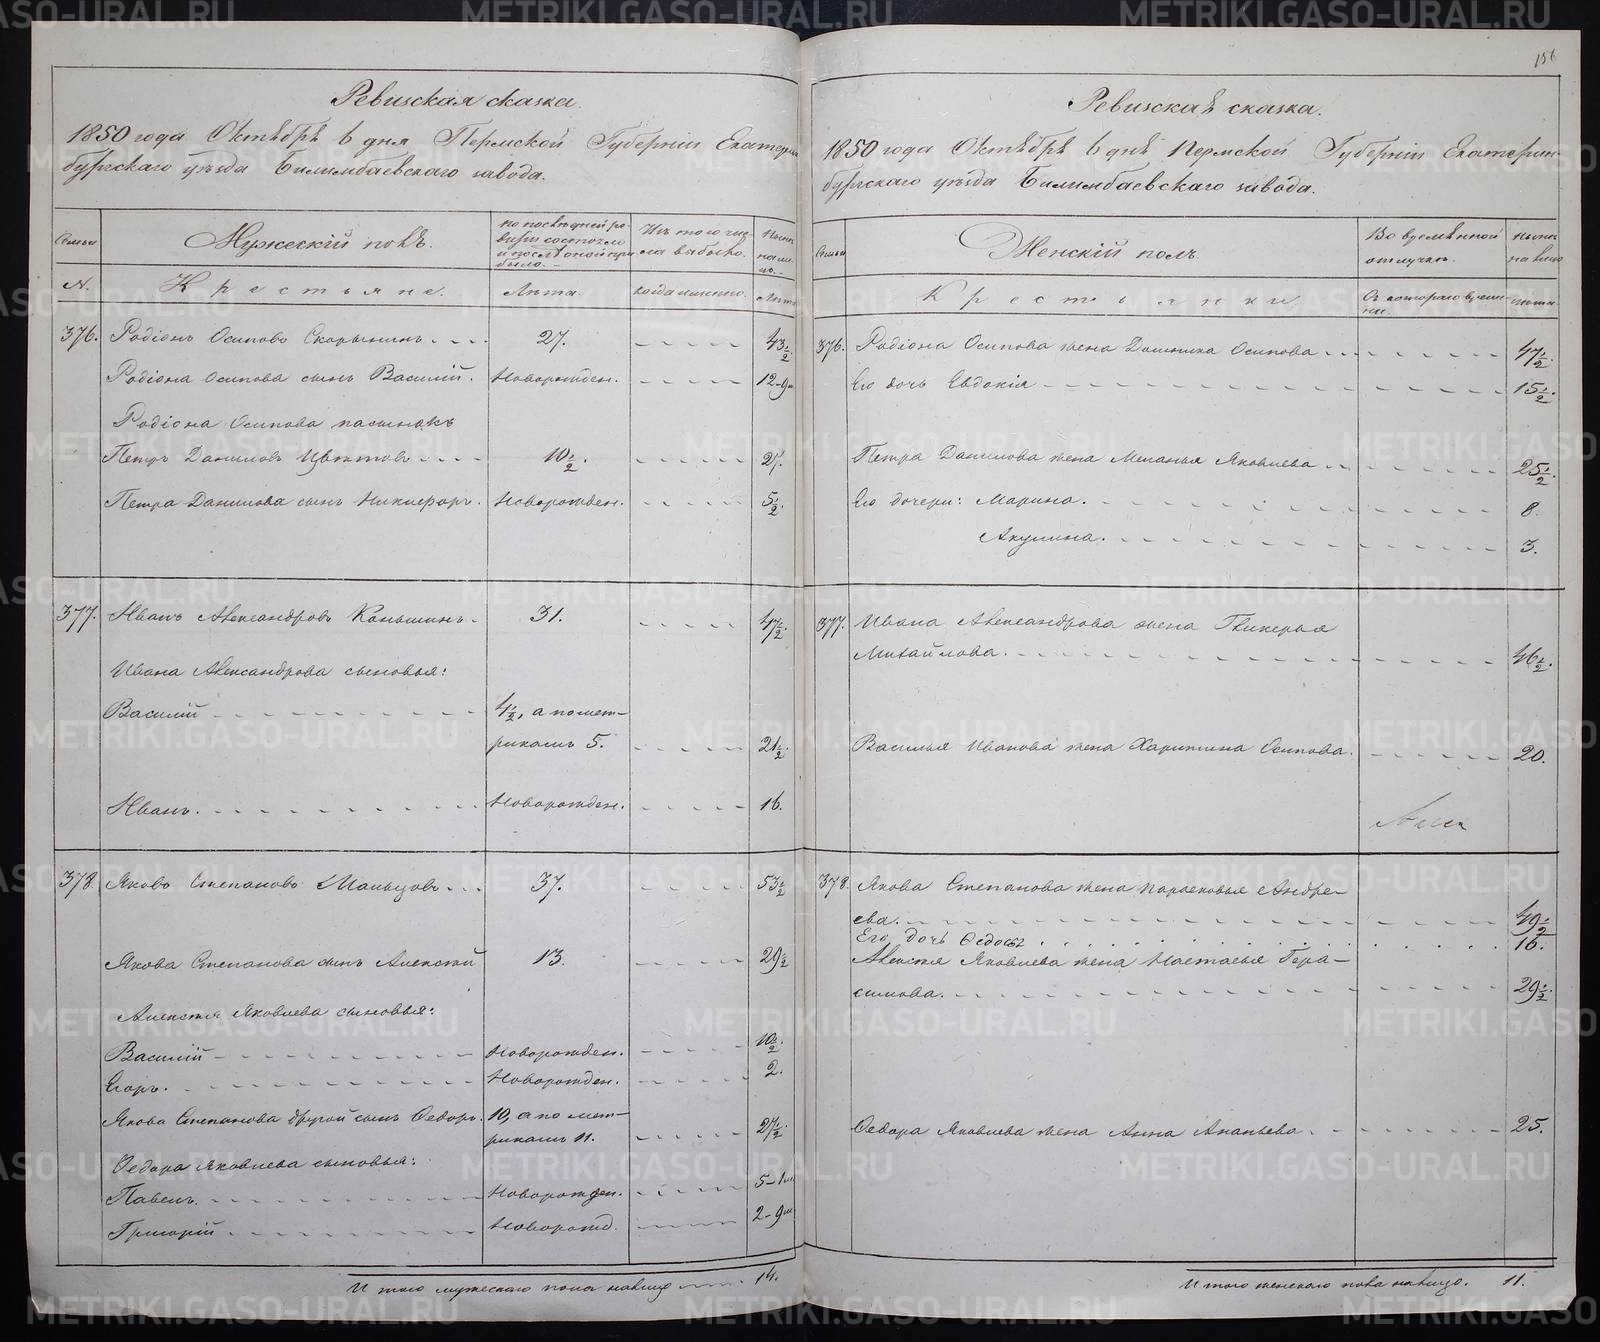 156
Ревизская сказка.
1850 года Октября 6 дня Пермской Губернiи Екатерин
бургскаго уѣзда Билимбаевскаго завода.
Семьи
Мужескiй полъ.
По последней ре
визiи состояло
и послѣ оной при
было.
Изъ того чис
ла выбыло.
Нынѣ
на ли
цо.
N.
Крестьяне.
Лѣта.
когда именно.
Лѣта
376. Родiонъ Осиповъ Скорынинъ 27. 43 1/2
Родiона Осипова сынъ Василiй. Новорожден. 12-9м
Родiона Осипова пасынокъ
Петръ Даниловъ Цвѣтовъ 10 1/2. 27.
Петра Данилова сынъ Никифоръ. Новорожден. 5 1/2.
377. Иванъ Александровъ Коньшинъ. 31. 47 1/2.
Ивана Александрова сыновья:
Василiй 4 1/2, а по мет-
рикамъ 5. 21 1/2.
Иванъ. Новорожден. 16.
378. Яковъ Степановъ Мальцовъ 37. 53 1/2
Якова Степанова сынъ Алексѣй 13. 29 1/2
Алексѣя Яковлева сыновья:
Василiй Новорожден. 10 1/2.
Егоръ. Новорожден. 2.
Якова Степанова другой сынъ Ѳедоръ. 10, а по мет-
рикамъ 11. 27 1/2.
Ѳедора Яковлева сыновья:
Павелъ. Новорожден. 5-1м
Григорiй Новорожд. 2-9м
Итого мужескаго пола налицо 14.
Ревизская сказка.
1850 года Октября 6 дня Пермской Губернiи Екатерин-
бургскаго уѣзда Билимбаевскаго завода.
Семьи
Женскiй полъ.
Во временной
отлучкѣ.
Нынѣ
на лицо
Крестьянки
Съ котораго време-
ни
Лѣта.
376. Родiона Осипова жена Домника Осипова 47 1/2.
Его дочь Евдокiя 15 1/2.
Петра Данилова жена Меланья Яковлева 25 1/2
Его дочери: Марина. 8.
Акулина. 3.
377. Ивана Александрова жена Гликерья
Михайлова. 46 1/2.
Василья Иванова жена Харитина Осипова. 20.
378. Якова Степанова жена Парасковья Андре-
ева. 49 1/2
Его дочь Ѳедосья 16.
Алексѣя Яковлева жена Настасья Гера-
симова. 29 1/2.
Ѳедора Яковлева жена Анна Ананьева 25.
Итого женскаго пола налицо. 11.
METRIKI.GASO-URAL.RU